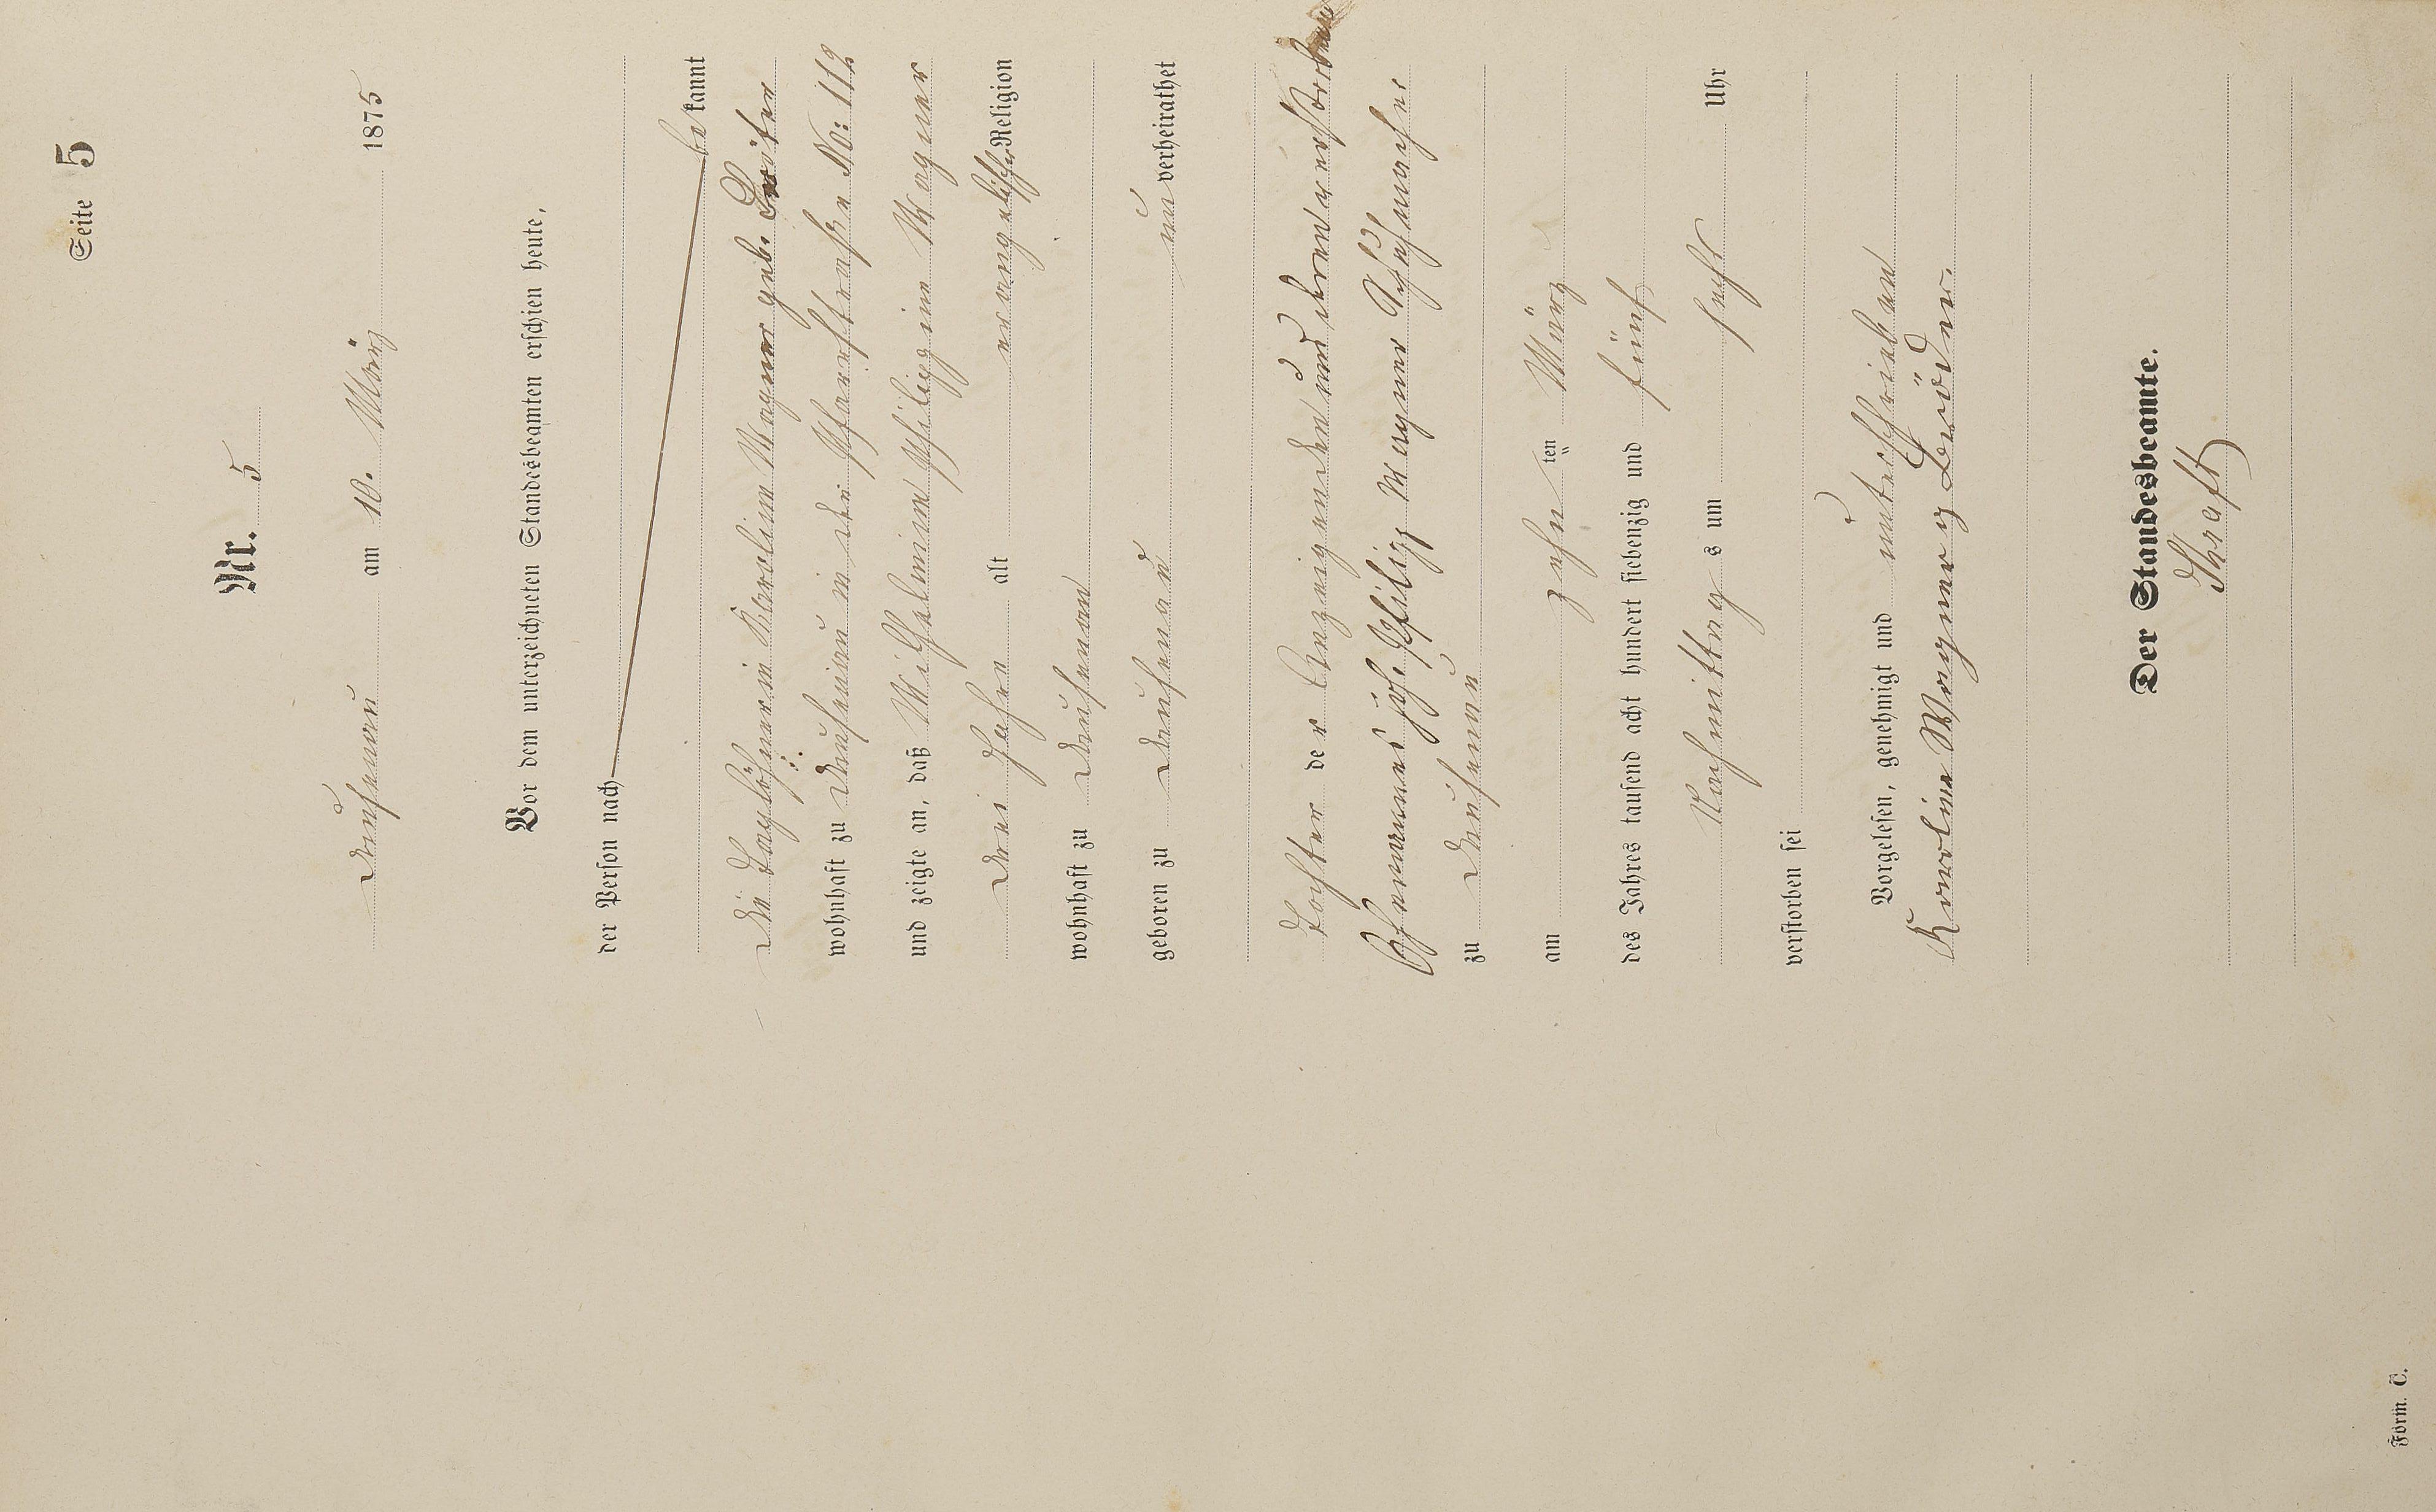 Seite 5
Nr. 5
Dausenau am 10. März 1875
Vor dem unterzeichneten Standesbeamten erschien heute,
der Person nach
bekannt
die Taglöhnerin Karoline Wagner geb. Bröder
wohnhaft zu Dausenau in der Pfarrstraße No: 112
und zeigte an, daß Wilhelmine Philippine Wagner
drei Jahre alt evangelischer Religion
wohnhaft zu Dausenau
geboren zu Dausenau unverheirathet
Tochter der Anzeigenden und deren verstorbenen
Ehemannes Philipp Wagner Schuhmacher
zu Dausenau
am zehn ten März
des Jahres tausend acht hundert siebenzig und fünf
Nachmittags um sechs Uhr
verstorben sei
Vorgelesen, genehmigt und unterschrieben
Karoline Wagner g Bröder.
Der Standesbeamte.
Form. C.